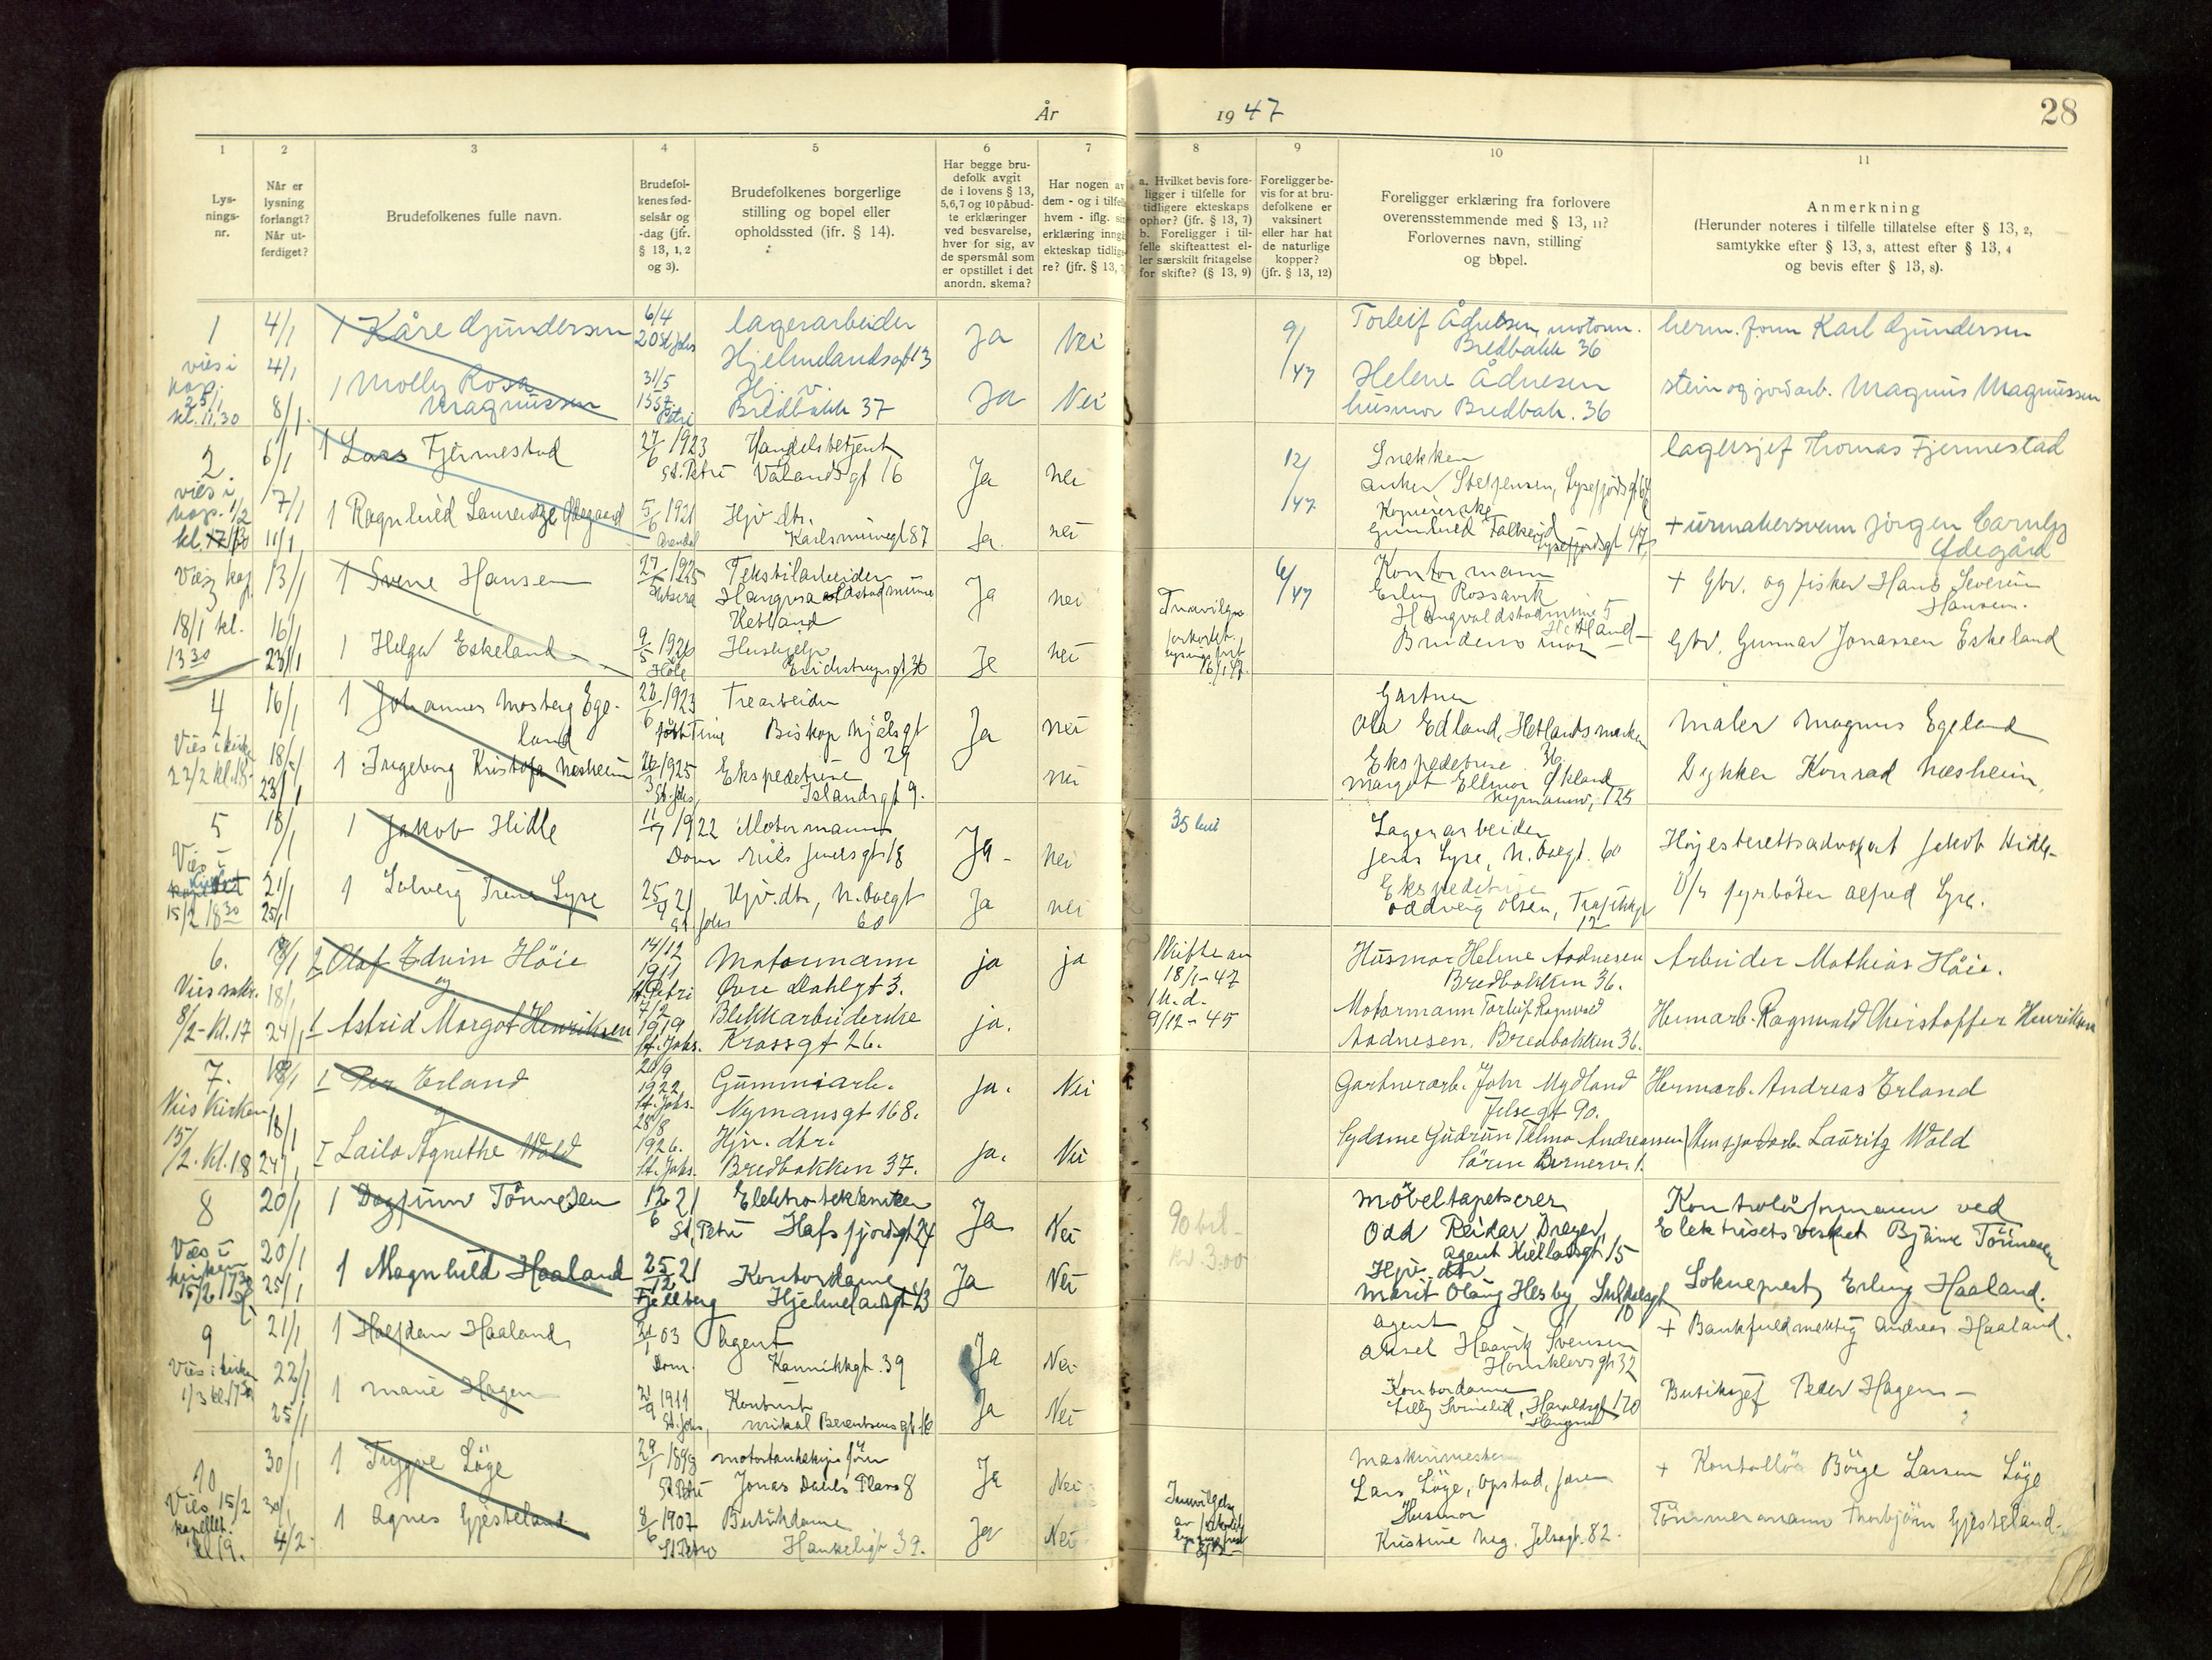 År
1947
28
1
Lys-
nings-
nr.
2
Når er
lysning
forlangt?
Når ut-
ferdiget?
3
Brudefolkenes fulle navn.
4
Brudefol-
kenes fød-
selsår og
-dag (jfr.
§ 13, 1, 2
og 3).
5
Brudefolkenes borgerlige
stilling og bopel eller
opholdssted (jfr. § 14).
6
Har begge bru-
defolk avgit
de i lovens § 13,
5,6,7 og 10 påbud-
te erklæringer
ved besvarelse,
hver for sig, av
de spørsmål som
er opstillet i det
anordn. skema?
7
Har nogen av
dem - og i tilfelle
hvem - iflg.
erklæring inngå
ekteskap tidlige-
re? (jfr. § 13,
8
a. Hvilket bevis fore-
ligger i tilfelle for
tidligere ekteskaps
ophør? (jfr. § 13, 7)
b. Foreligger i til-
felle skifteattest el-
ler særskilt fritagelse
for skifte? (§ 13, 9)
9
Foreligger be-
vis for at bru-
defolkene er
vaksinert
eller har hat
de naturlige
kopper?
(jfr. § 13, 12)
10
Foreligger erklæring fra forlovere
overensstemmende med § 13, 11?
Forlovernes navn, stilling
og bopel.
11
Anmerkning
(Herunder noteres i tilfelle tillatelse efter § 13, 2,
samtykke efter § 13, 3, attest efter § 13, 4
og bevis efter § 13, 8).
1
vies i
kap.
25/1
kl. 11,30
4/1
4/1
8/1
1 Kåre Gundersen
6/4
20 St. Johs
lagerarbeider
Hjelmelandsgt 13
Ja
Nei
9/1
/47
Torleif Ådnesen, motorm.
Bredbakk 36
herm. form Karl Gundersen
1 Molly Rosa
Magnussen
31/5
Petri
Hj. v.
Bredbakk 37
Ja
Nei
Helene Ådnesen
husmor Bredbak. 36
stein og jordarb. Magnus Magnussen
2.
vies i
kap. 1/2
6/1
7/1
11/1
1 Lars Fjermestad
27/6 1923
St. Petri
Handelsbetjent
Vålandsgt 16
Ja
nei
12/1
/47
Snekker
Anker Steffensen, Lysefjordsgt
lagersjef Thomas Fjermestad
1 Ragnhild Laurentze Ødegaard
5/6 1921
Arendal
Hjv. dtr.
Karlsminnegt 87
Ja
nei
Gunhild Falkeid
Lysefjordsgt 47
+ urmakersvenn Jørgen Carnby
Ødegård
Vies kap
18/1 kl.
13 30
13/1
16/1
23/1
1 Sverre Hansen
27/ 1925
Tekstilarbeider
Hetland
Ja
nei
6/1
/47
Kontormann
Erling Rossavik
Haugvaldstadminne 5
Hetland
+ Gbr. og fisker Hans Severin
Hansen.
1 Helga Eskeland
9/5 1926
Høle
Hushjelp
Eirikstrupsgt 36
Ja
nei
16/1 47.
Brudens mor
Gbr. Gunnar Jonassen Eskeland
4
Vies i kirke
22/2 kl. 18
16/1
18/1
23/1
1 Johannes Mosberg Ege-
land
1923
Time
Trearbeider
Biskop Njålsgt
29
Ja
nei
Gartner
Ola Edland, Hetlandsmarken
Maler Magnus Egeland
1 Ingeborg Kristofa Næsheim
26/3 1925
St. Johs,
Ekspeditrise
Islandsgt 9.
nei
Ekspeditrise
Margot Ellinor Økland
Nymannsv. 125
Dykker Konrad Næsheim
5
Vies i
kirken
15/2 18 30
18/1
21/1
25/1
1 Jakob Hidle
11/7 1922
Dom
Motormann
Nils Juelsgt 18
Ja
nei
Lagerarbeider
Jens Lyse, N. Dalgt. 60
Høyesterettsadvokat Jakob Hidle
1 Solveig Irene Lyse
25/9 21
St. Johs
Hjv. dtr,
60
Ja
nei
Ekspeditrise
Oddveig Olsen, Trafikkgt
12
D/s fyrbøter Alfred Lyse.
6.
8/2 - Kl. 17
18/1
24/1
2 Olaf Edvin Höie
og
14/12
1911
St. Petri
Motormann
Øvre Dahlgt 3.
ja
ja
Skifte av
18/1-47
9/12-45
Husmor Helene Aadnesen
Bredbakken 36.
Arbeider Mathias Höie.
1 Astrid Margot Henriksen
7/2
1919
St. Johs.
Blikkarbeiderske
Krossgt 26.
ja.
Motormann Torleif Ragnvald
Aadnesen, Bredbakken 36.
Hermarb. Ragnvald Christoffer Henriksen
7.
Vies Kirken
15/2. Kl. 18
18/1
18/1
24/1
1 Per Erland
og
20/9
1922
St. Johs.
Gummiarb.
Nymansgt 168.
ja.
Nei
Gartnerarb. John Mydland
Jelsagt 90.
Hermarb. Andreas Erland
1 Laila Agnethe Wold
28/8
1926.
St. Johs.
Hjv. dtr.
Bredbakken 37.
ja.
Nei
Sydame Gudrun Telma Andreassen
Sören Berners 1.
Lauritz Wold
8
Vies i
kirken
15/2 17 30
20/1
20/1
25/1
1 Dagfinn Tönnesen
12/6 21
St. Petri
Elektrotekniker
Hafsfjordsgt 24
Ja
Nei
90 bil
kr. 3.00
Møbeltapetserer
Odd Reidar Dreyer,
Agent Kiellandsgt 15
Kontrollørformann ved
Elektrisitetsverket Bjarne Tönnesen
1 Magnhild Haaland
25/12 21
Fjellberg
Kontordame
Hjelmelandsgt 43
Ja
Nei
Hjv. dtr
Marit Olaug Hesby, Suldalsgt
10
Sokneprest Erling Haaland.
9
Vies i kirken
1/3 kl. 17 30
21/1
22/1
25/1
1 Halfdan Haaland
21/1 03
Dom.
Agent
Kannikkgt. 39
Ja
Nei
Agent
Aksel Haavik Svensen
Hornklovsgt 32
+ Bankfuldmektig Andreas Haaland.
1 Marie Hagen
21/9 1911
St. Johs,
Kontorist
Mikal Berentsens gt 16
Ja
Nei
Kontordame
Lilly Svineli, Haraldsgt 170
Haugesund
Butikksjef Peder Hagen
10
Vies 15/2
kapellet.
kl 19.
30/1
30/1
4/2
1 Trygve Løge
29/1 1898
St. Petri
Jonas Dahls Plass 8
Ja
Nei
Maskinmester
Lars Løge, Opstad, Jæren
+ Kontrollør Børge Larsen Løge
1 Agnes Gjesteland
8/6 1907
St. Petri
Butikkdame
Haukeligt 39.
Ja
Nei
Husmor
Kristine Neg. Jelsagt. 82
Tömmermann Thorbjørn Gjesteland